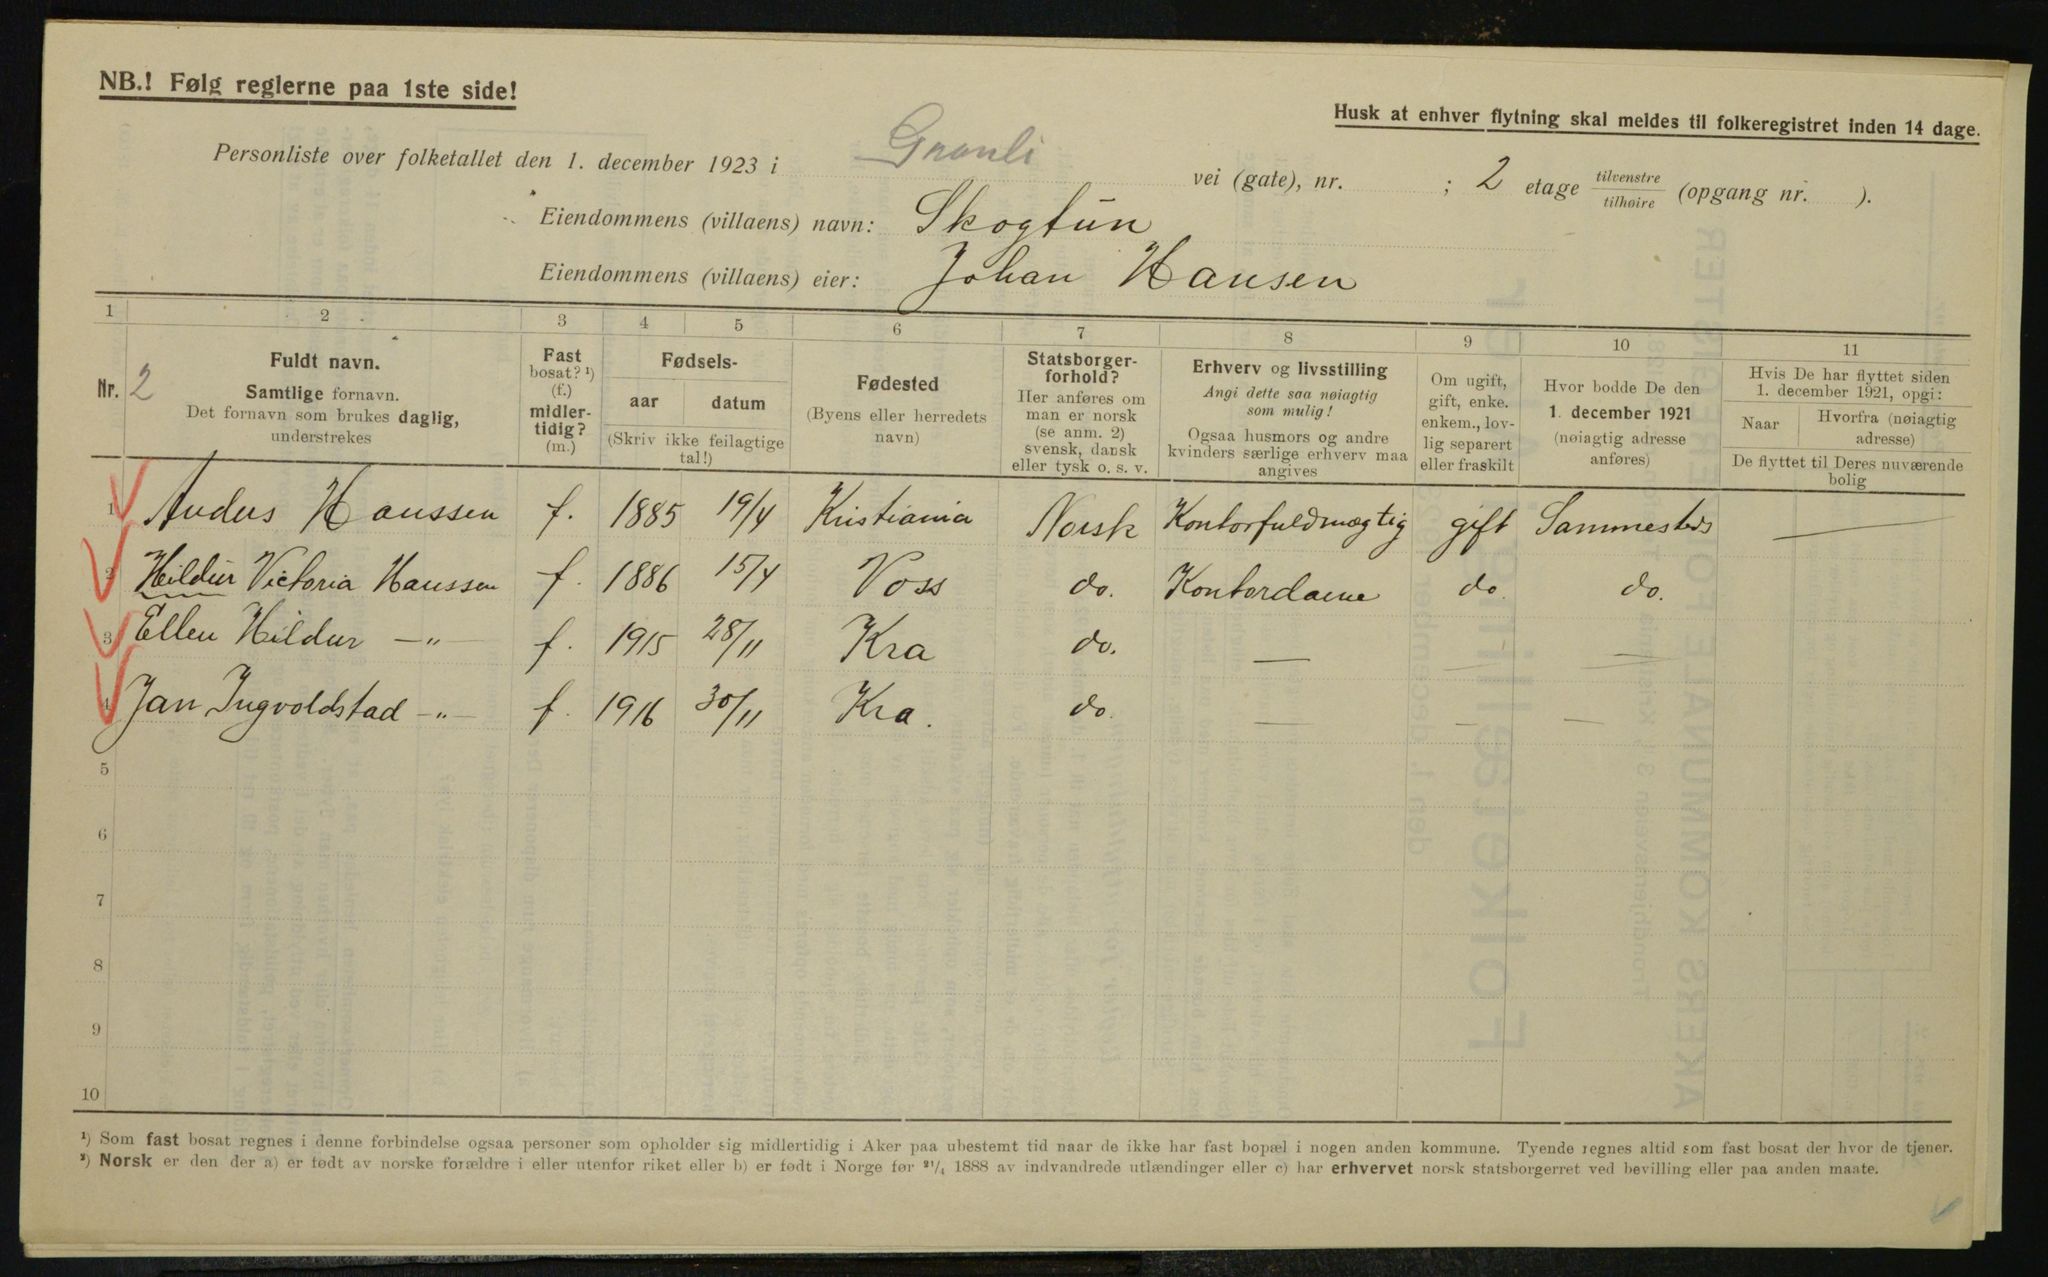 NB.! Følg reglerne paa 1ste side!
Husk at enhver flytning skal meldes til folkeregistret inden 14 dage.
Personliste over folketallet den 1. december 1923 i Granli vei (gate), nr. ; 2 etage tilvenstre tilhøire (opgang nr. ).
Eiendommens (villaens) navn: Skogtun
Eiendommens (villaens) eier: Johan Hansen
1 2 3 4 5 6 7 8 9 10 11
Nr. 2
Fuldt navn.
Samtlige fornavn.
Det fornavn som brukes daglig,
understrekes
Fast
bosat? ¹)
(f.)
midler-
tidig?
(m.)
Fødsels-
aar datum
(Skriv ikke feilagtige
tal!)
Fødested
(Byens eller herredets
navn)
Statsborger-
forhold?
Her anføres om
man er norsk
(se anm. 2)
svensk, dansk
eller tysk o. s. v.
Erhverv og livsstilling
Angi dette saa nøiagtig
som mulig!
Ogsaa husmors og andre
kvinders særlige erhverv maa
angives
Om ugift,
gift, enke.
enkem., lov-
lig separert
eller fraskilt
Hvor bodde De den
1. december 1921
(nøiagtig adresse
anføres)
Hvis De har flyttet siden
1. december 1921, opgi:
Naar Hvorfra (nøiagtig
adresse)
De flyttet til Deres nuværende
bolig
1 Anders Hanssen f. 1885 19/4 Kristiania Norsk Kontorfuldmægtig gift Sammesteds —
2 Hildur Victoria Hanssen f. 1886 15/4 Voss do. Kontordame do. do.
3 Ellen Hildur —"— f. 1915 28/11 Kra do. — — —
4 Jan Ingvoldstad —"— f. 1916 30/11 Kra. do. — — —
5
6
7
8
9
10
¹) Som fast bosat regnes i denne forbindelse ogsaa personer som opholder sig midlertidig i Aker paa ubestemt tid naar de ikke har fast bopæl i nogen anden kommune. Tyende regnes altid som fast bosat der hvor de tjener.
²) Norsk er den der a) er født av norske forældre i eller utenfor riket eller b) er født i Norge før 21/4 1888 av indvandrede utlændinger eller c) har erhvervet norsk statsborgerret ved bevilling eller paa anden maate.